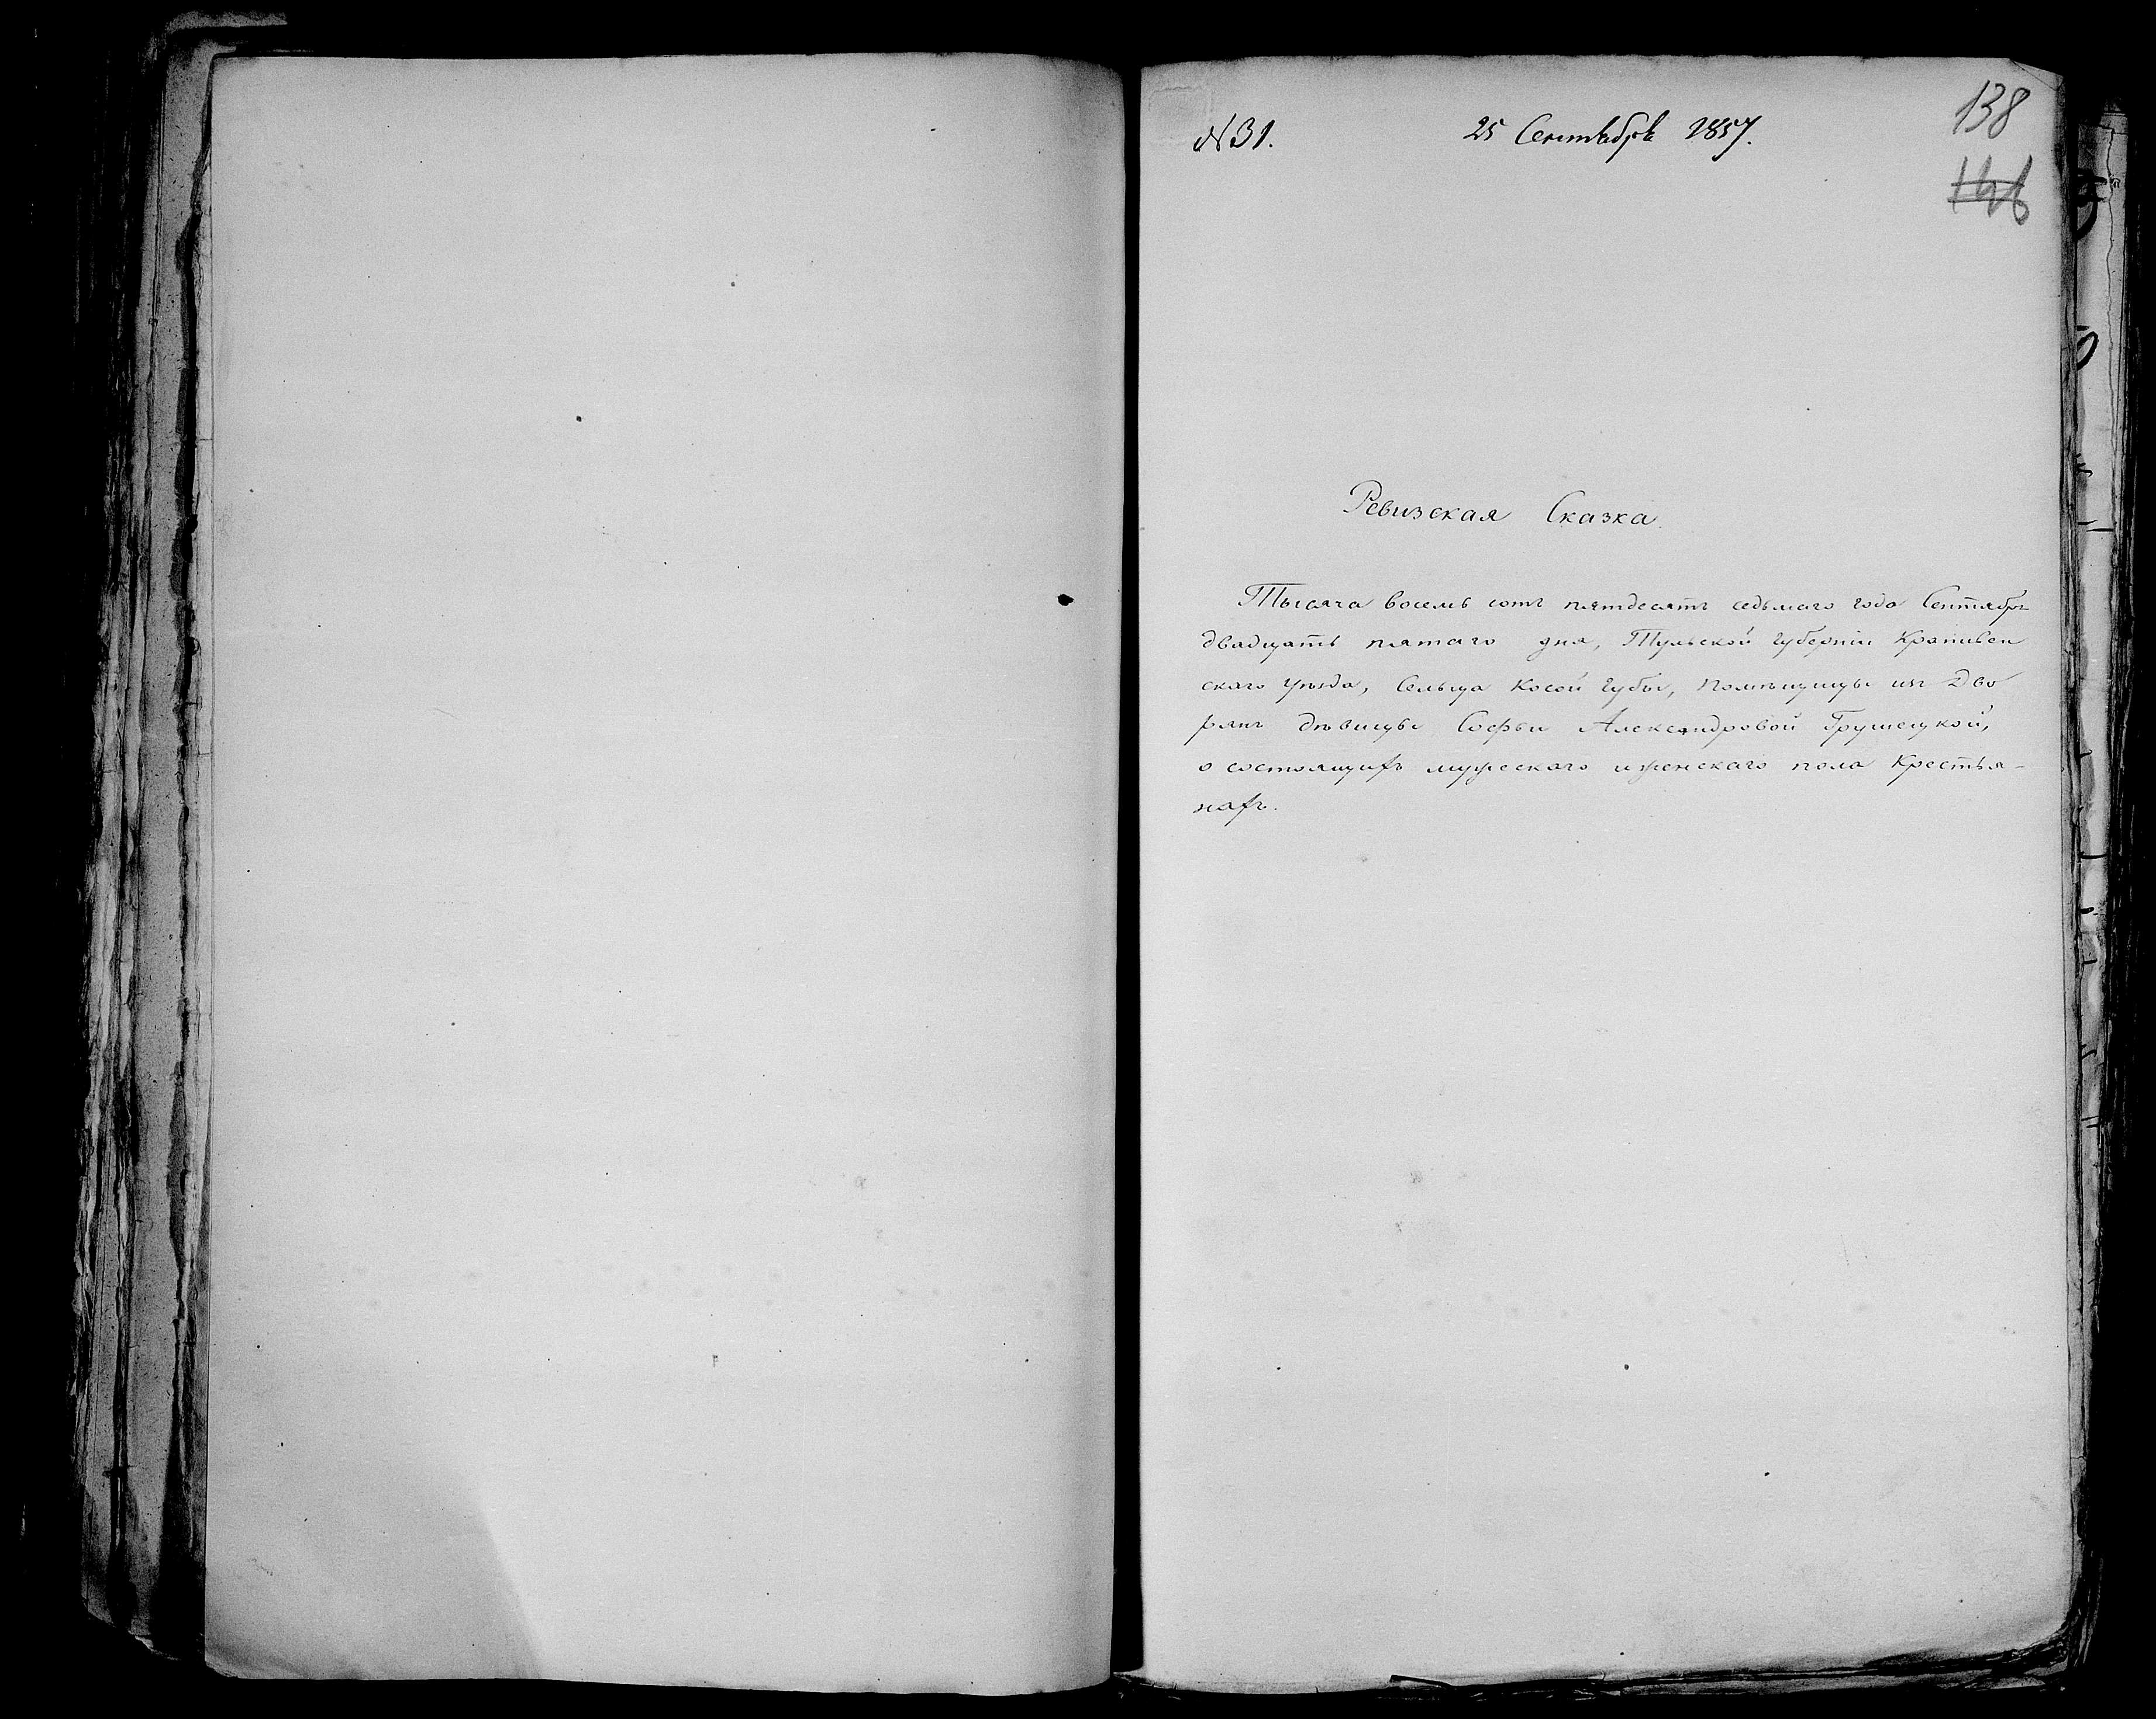 № 31. 25 Сентября 1857. 138
Ревизская Сказка.
Тысяча восемь сотъ пятдесятъ седьмаго года Сентября
двадцать пятаго дня, Тульской Губерніи Крапивен
скаго уѣзда, Сельца Косой Губы, Помѣщицы изъ Дво
рянъ дѣвицы Софьи Александровой Грушецкой,
о состоящихъ мужескаго и женскаго пола Крестья-
нахъ.